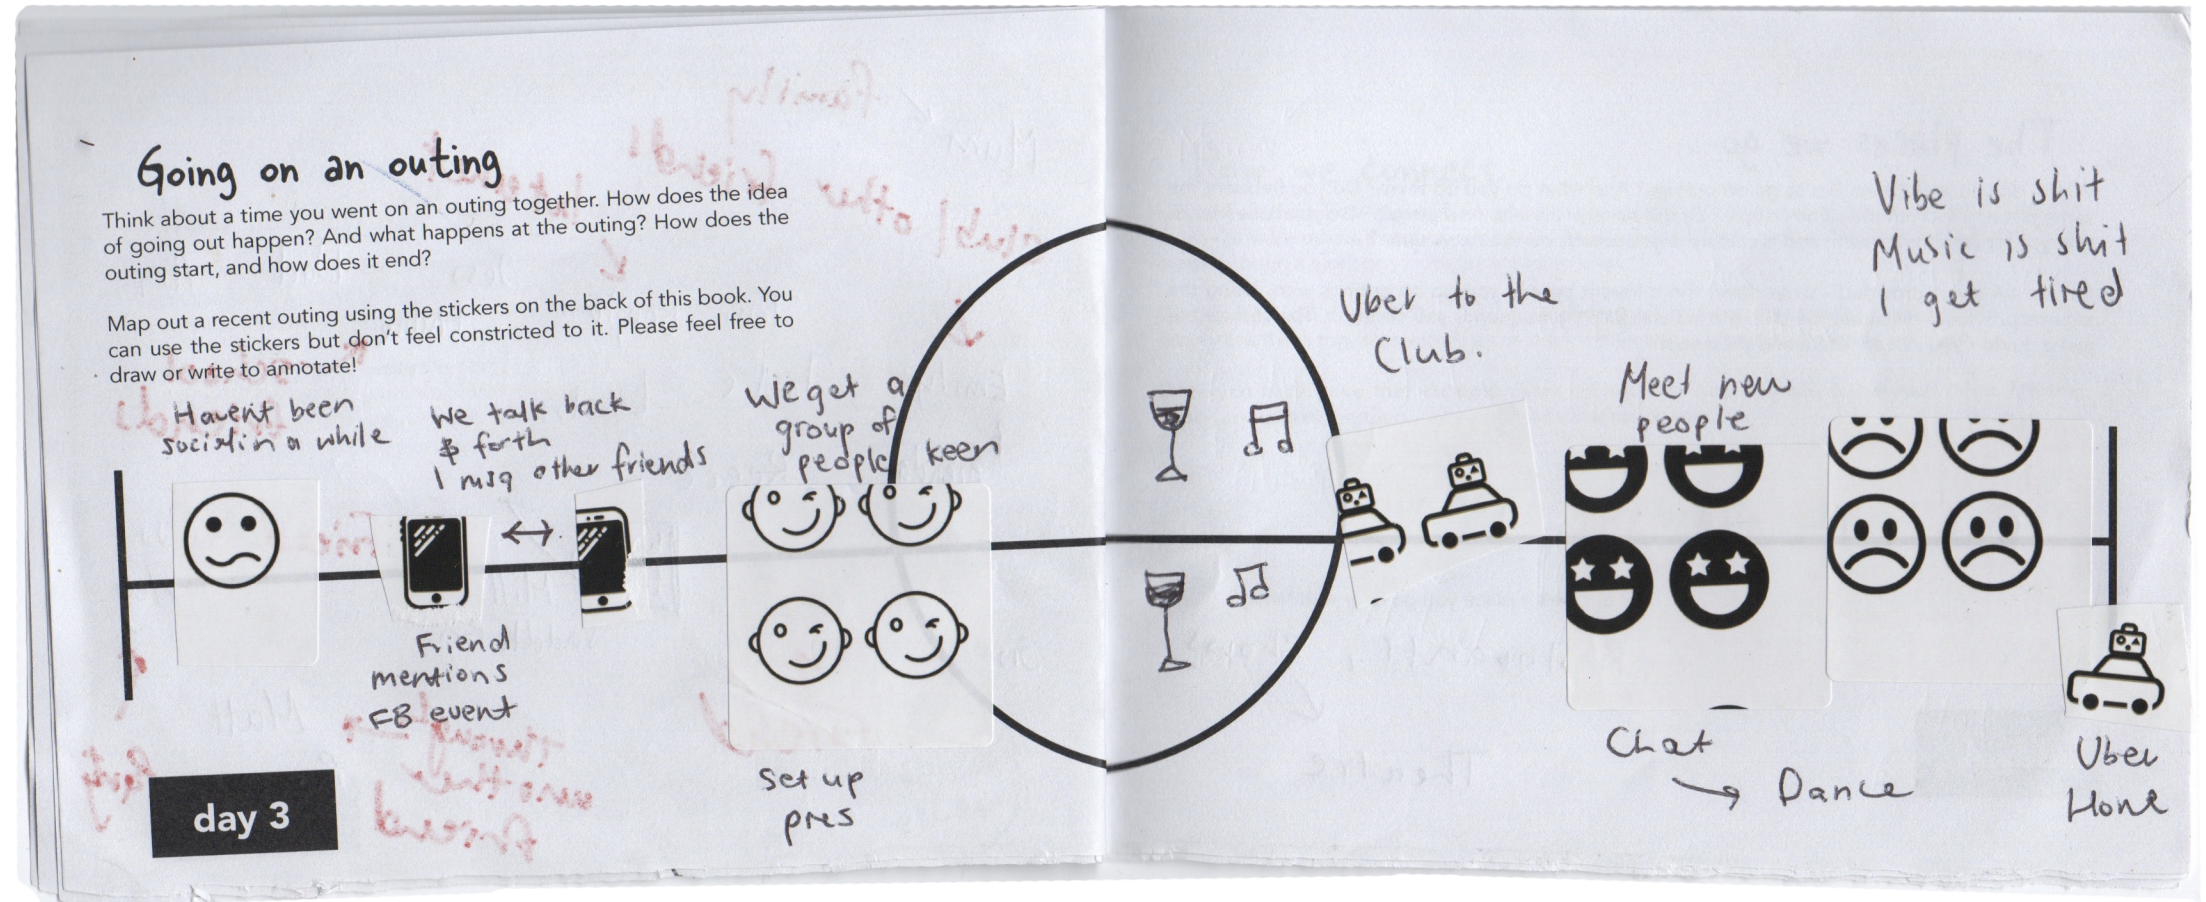 Going on an outing
Think about a time you went on an outing together. How does the idea
of going out happen? And what happens at the outing? How does the
outing start, and how does it end?
Map out a recent outing using the stickers on the back of this book. You
can use the stickers but don't feel constricted to it. Please feel free to
draw or write to annotate!
Haven't been
social in a while
We talk back
& forth
I msg other friends
Friend
mentions
FB event
We get a
group of
people keen
Set up
pres
Uber to the
Club.
Meet new
people
Chat
Dance
Vibe is shit
Music is shit
I get tired
Uber
Home
day 3